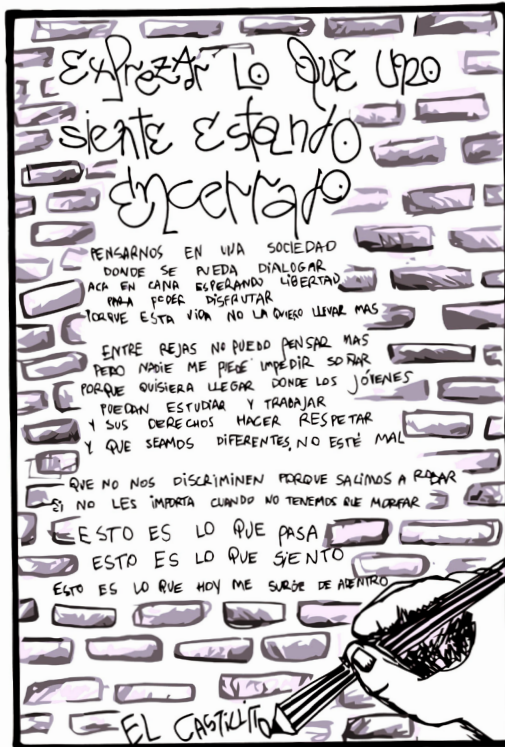 EXPREZAR LO QUE UNO
SIENTE ESTANDO
ENCERRADO
PENSARNOS EN UNA SOCIEDAD
DONDE SE PUEDA DIALOGAR
ACA EN CANA ESPERANDO LIBERTAD
PARA PODER DISFRUTAR
PORQUE ESTA VIDA NO LA QUIERO LLEVAR MAS
ENTRE REJAS NO PUEDO PENSAR MAS
PERO NADIE ME PUEDE IMPEDIR SOÑAR
PORQUE QUISIERA LLEGAR DONDE LOS JÓVENES
PUEDAN ESTUDIAR Y TRABAJAR
Y SUS DERECHOS HACER RESPETAR
Y QUE SEAMOS DIFERENTES, NO ESTÉ MAL
QUE NO NOS DISCRIMINEN PORQUE SALIMOS A ROBAR
SI NO LES IMPORTA CUANDO NO TENEMOS QUE MORFAR
ESTO ES LO QUE PASA
ESTO ES LO QUE SIENTO
ESTO ES LO QUE HOY ME SURGE DE ADENTRO
EL CASTILLITO